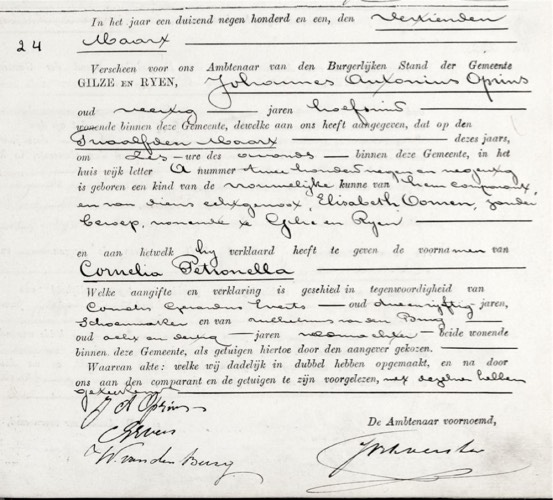 In het jaar een duizend negen honderd en een, den veertienden
24
Maart
Verscheen voor ons Ambtenaar van den Burgerlijken Stand der Gemeente
GILZE EN RYEN, Johannes Antonius Oprins
oud veertig jaren hoefsmid
wonende binnen deze Gemeente, dewelke aan ons heeft aangegeven, dat op den
Twaalfden Maart dezes jaars,
om zes ure des avonds binnen deze Gemeente, in het
huis wijk letter A nummer twee honderd negen en negentig
is geboren een kind van de vrouwelijke kunne van hem comparant,
en van diens echtgenoot, Elisabeth Oomen, zonder
beroep, wonende te Gilze en Ryen
en aan hetwelk hij verklaard heeft te geven de voornamen van
Cornelia Petronella
Welke aangifte en verklaring is geschied in tegenwoordigheid van
Cornelis Gerardus Everts oud drie en vijftig jaren,
Schoenmaker en van Wilhelmus van den Burg
oud acht en dertig jaren beide wonende
binnen deze Gemeente, als getuigen hiertoe door den aangever gekozen.
Waarvan akte: welke wij dadelijk in dubbel hebben opgemaakt, en na door
ons aan den comparant en de getuigen te zijn voorgelezen, met dezelve hebben
geteekend
J A Oprins
De Ambtenaar voornoemd,
W. van den Burg